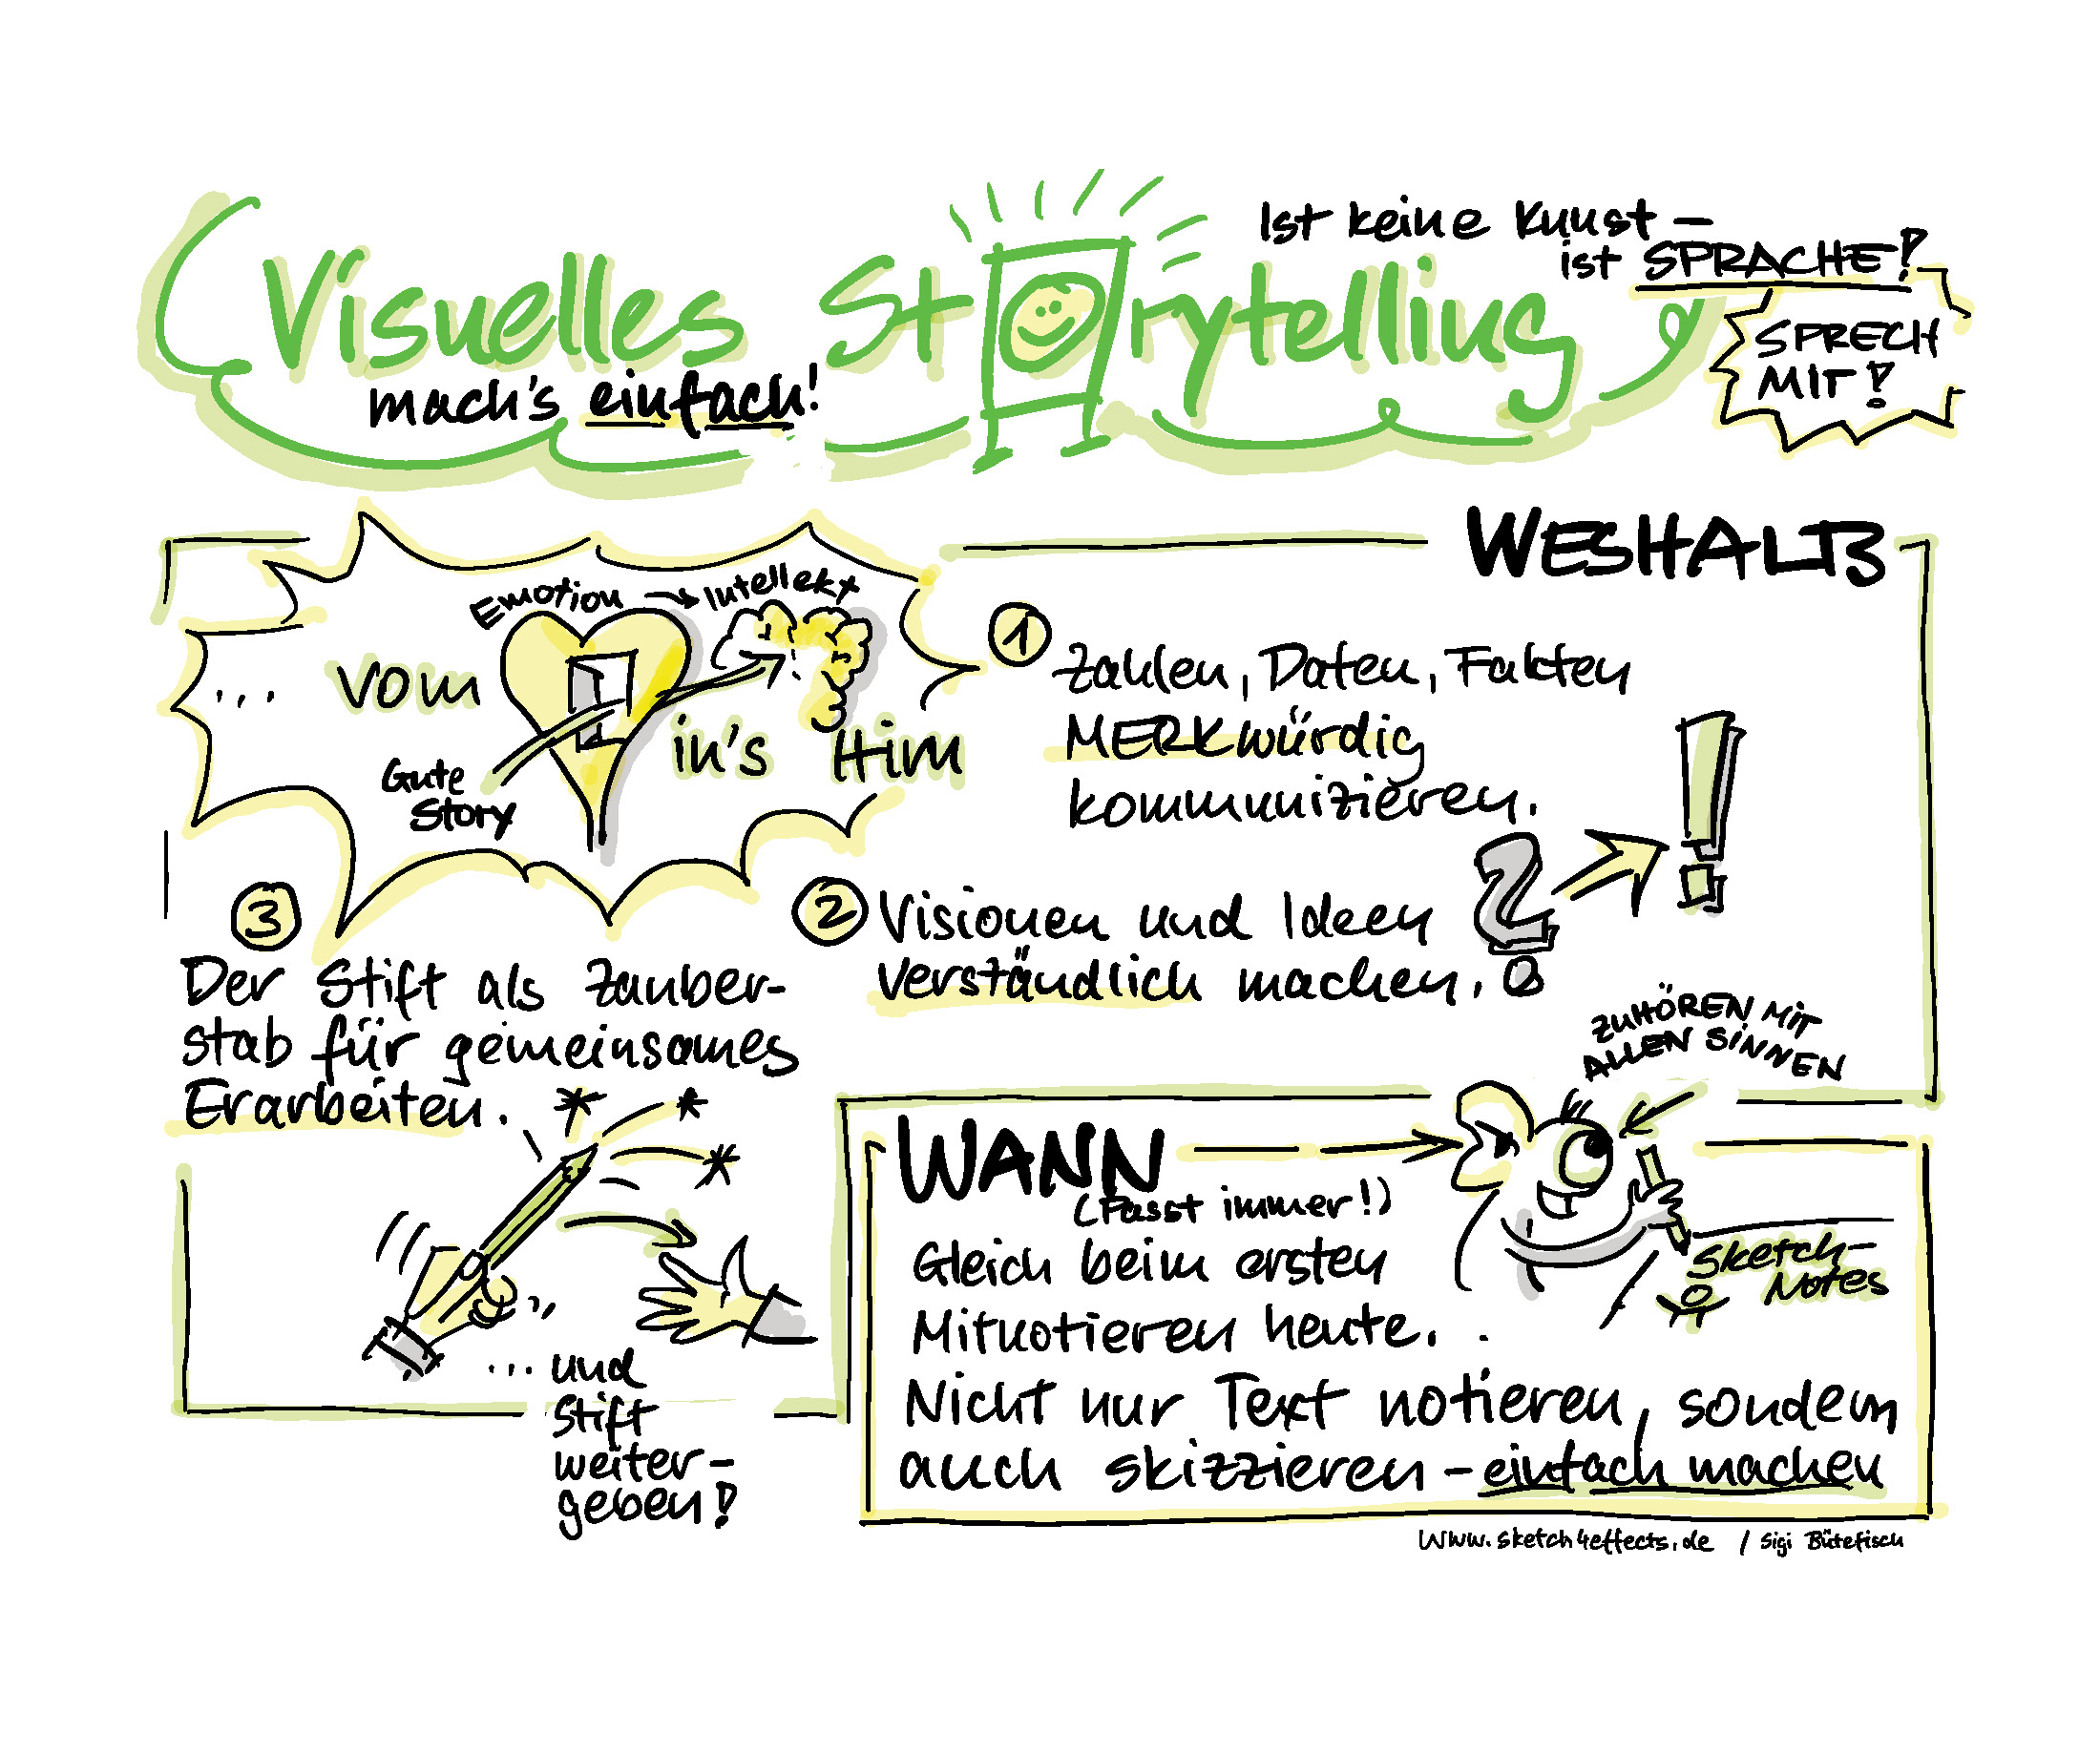 Ist keine Kunst –
ist SPRACHE!
Visuelles Storytelling
mach's einfach!
SPRECH
MIT!
WESHALB
Emotion → Intellekt
... vom in's Hirn
Gute
Story
1
Zahlen, Daten, Fakten
MERKwürdig
kommunizieren.
2 Visionen und Ideen
verständlich machen.
? → !
3
Der Stift als Zauber-
stab für gemeinsames
Erarbeiten.
... und
Stift
weiter-
geben!
ZUHÖREN MIT
ALLEN SINNEN
WANN
(Passt immer!)
Gleich beim ersten
Mitnotieren heute.
Sketch-
Notes
Nicht nur Text notieren, sondern
auch skizzieren – einfach machen
www.sketch4effects.de / Sigi Bütefisch